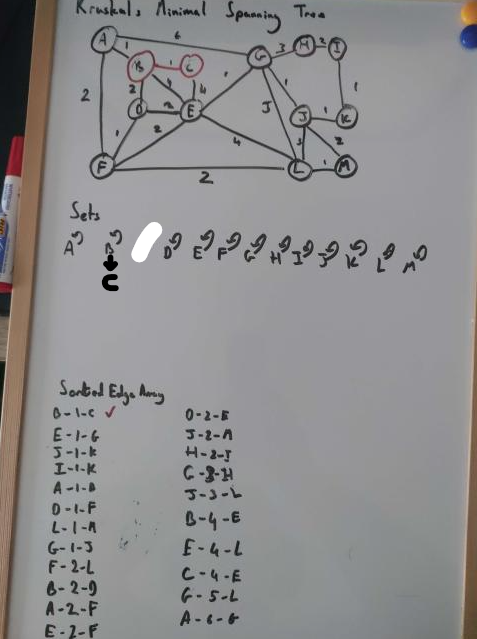 Kruskals Minimal Spanning Tree
A 6 G 3 H 2 I
1
B 1 C
2 2 4 4 1 5 1 1
D 2 E J 1 K
1 2 4 3 2
F 2 L 1 M
Sets
A B D E F G H I J K L M
C
Sorted Edge Array
B-1-C ✓
E-1-G
J-1-K
I-1-K
A-1-B
D-1-F
L-1-M
G-1-J
F-2-L
B-2-D
A-2-F
E-2-F
D-2-E
J-2-M
H-2-I
G-3-H
J-3-L
B-4-E
E-4-L
C-4-E
G-5-L
A-6-G